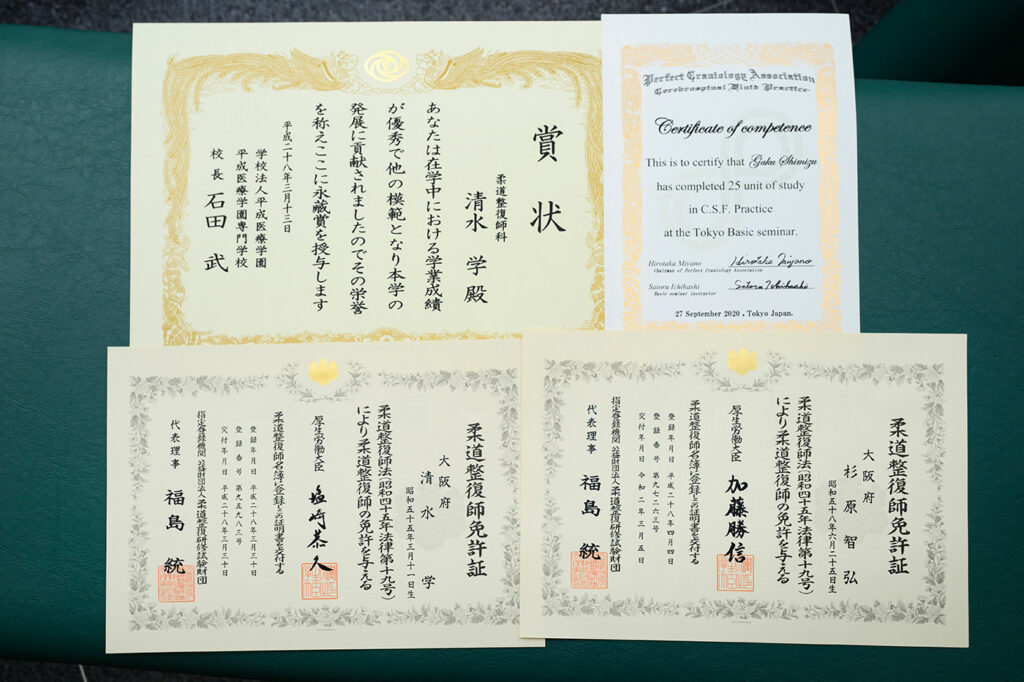 賞状
柔道整復師科
清水 学 殿
あなたは在学中における学業成績
が優秀で他の模範となり本学の
発展に貢献されましたのでその栄誉
を称えここに永蔵賞を授与します
平成二十八年三月十三日
学校法人平成医療学園
平成医療学園専門学校
校長 石田 武
Perfect Craniology Association
Cerebrospinal Fluid Practice
Certificate of competence
This is to certify that Gaku Shimizu
has completed 25 unit of study
in C.S.F. Practice
at the Tokyo Basic seminar.
Hirotaka Miyano Hirotaka Miyano
Chairman of Perfect Craniology Association
Satoru Ichihashi Satoru Ichihashi
Basic seminar instructor
27 September 2020 、Tokyo Japan.
柔道整復師免許証
大阪府
清水 学
昭和五十五年三月十一日生
柔道整復師法(昭和四十五年法律第十九号)
により柔道整復師の免許を与える
厚生労働大臣 塩崎恭久
柔道整復師名簿に登録しこの証明書を交付する
登録年月日 平成二十八年三月三十日
登録番号 第九五九八三号
交付年月日 平成二十八年三月三十日
指定登録機関 公益財団法人柔道整復研修試験財団
代表理事 福島 統
柔道整復師免許証
大阪府
杉原智弘
昭和五十八年六月二十五日生
柔道整復師法(昭和四十五年法律第十九号)
により柔道整復師の免許を与える
厚生労働大臣 加藤勝信
柔道整復師名簿に登録しこの証明書を交付する
登録年月日 平成二十八年四月四日
登録番号 第九七二六三号
交付年月日 令和二年三月五日
指定登録機関 公益財団法人柔道整復研修試験財団
代表理事 福島 統